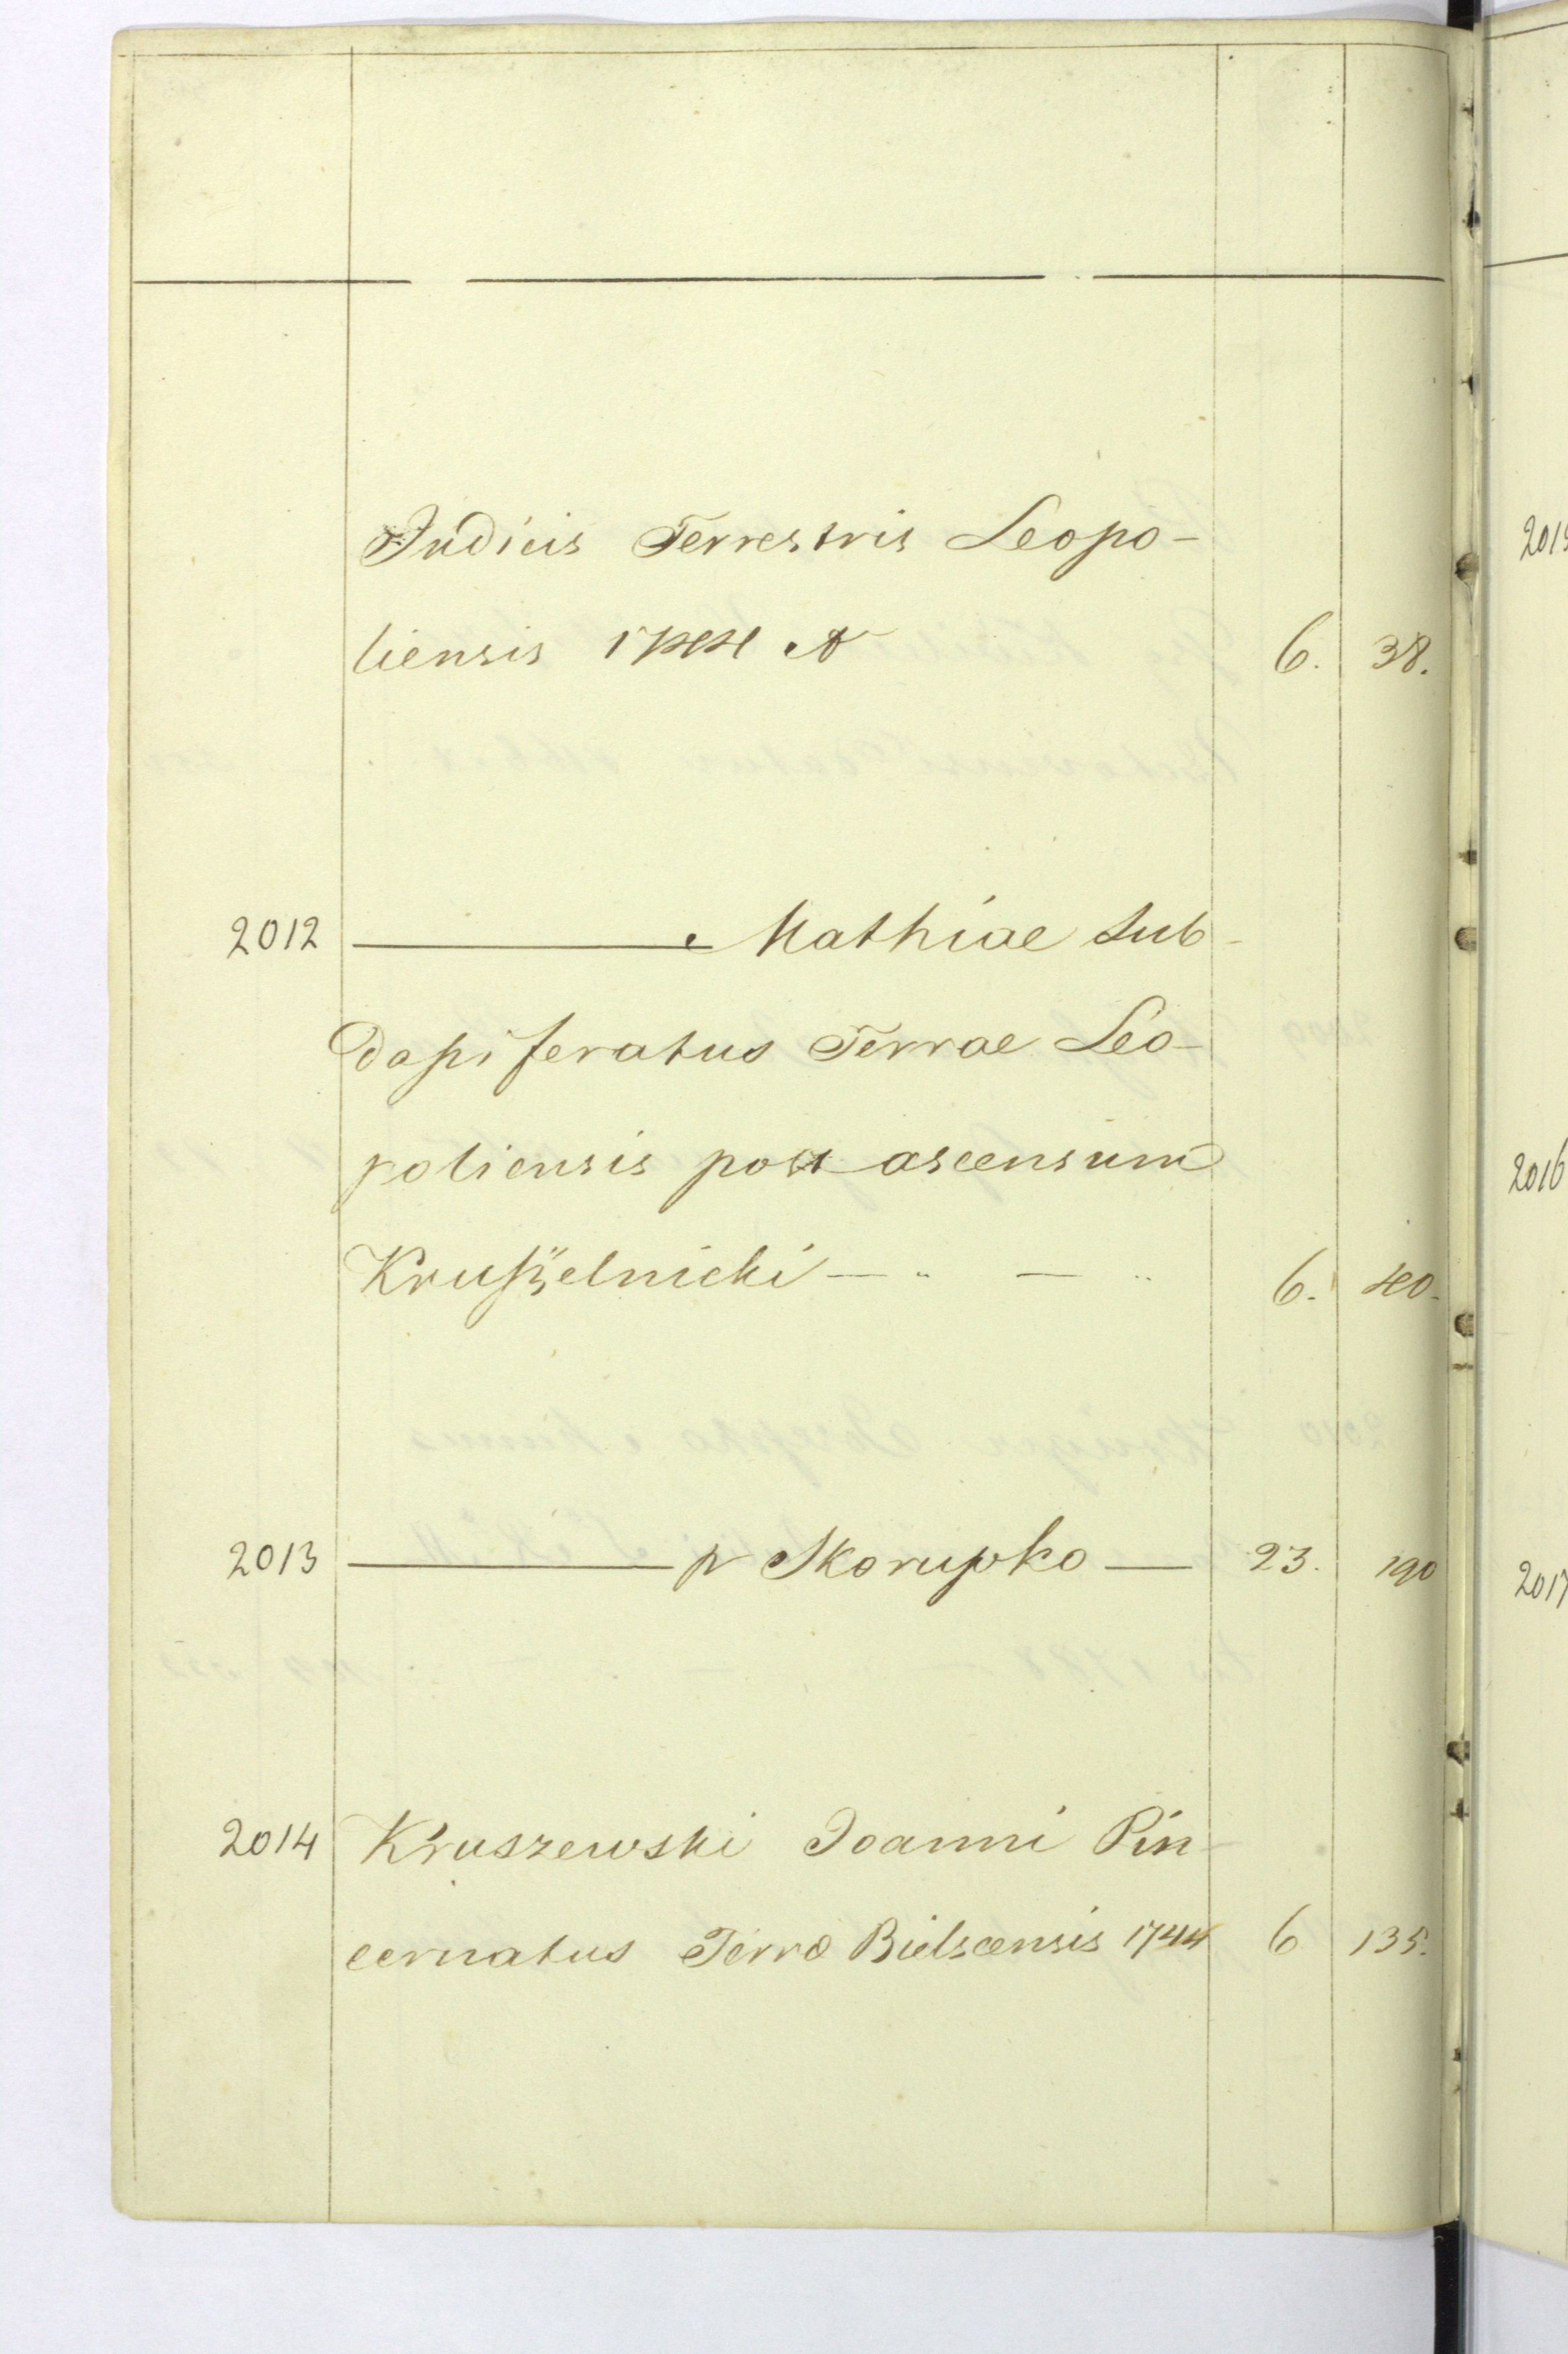 Judicis Terrestris Leopo-
liensis 1744 6. 38.
2012 ——— Mathiae Sub-
dapiferatus Terrae Leo-
poliensis post ascensum
Kruszelnicki — „ — „ 6. 40.
2013 ——— p Skorupko — 23. 190
2014 Kruszewski Joanni Pin-
cernatus Terra Bielscensis 1744 6 135.
2015
2016
2017